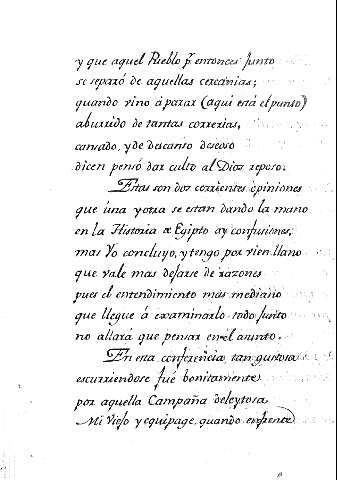 y que aquel Pueblo pr. entonces junto
se separó de aquellas cercanias;
quando vino à parar (aqui está el punto)
aburrido de tantas correrias,
cansado, y de descanso deseoso
dicen pensó dar culto al Dios reposo.
Estas son dos corrientes opiniones
que úna y otra se estan dando la mano
en la Historia de Egipto ay confusiones;
mas Yo concluyo, y tengo por vien llano
que vale mas dejarse de razones
pues el entendimiento más mediano
que llegue á examinarlo todo junto
no allará que pensar en el asunto.
En esta conferencia tan gustosa
escurriendose fué bonitamente
por aquella Campaña deleytosa
Mi Viejo y equipage, quando enfrente